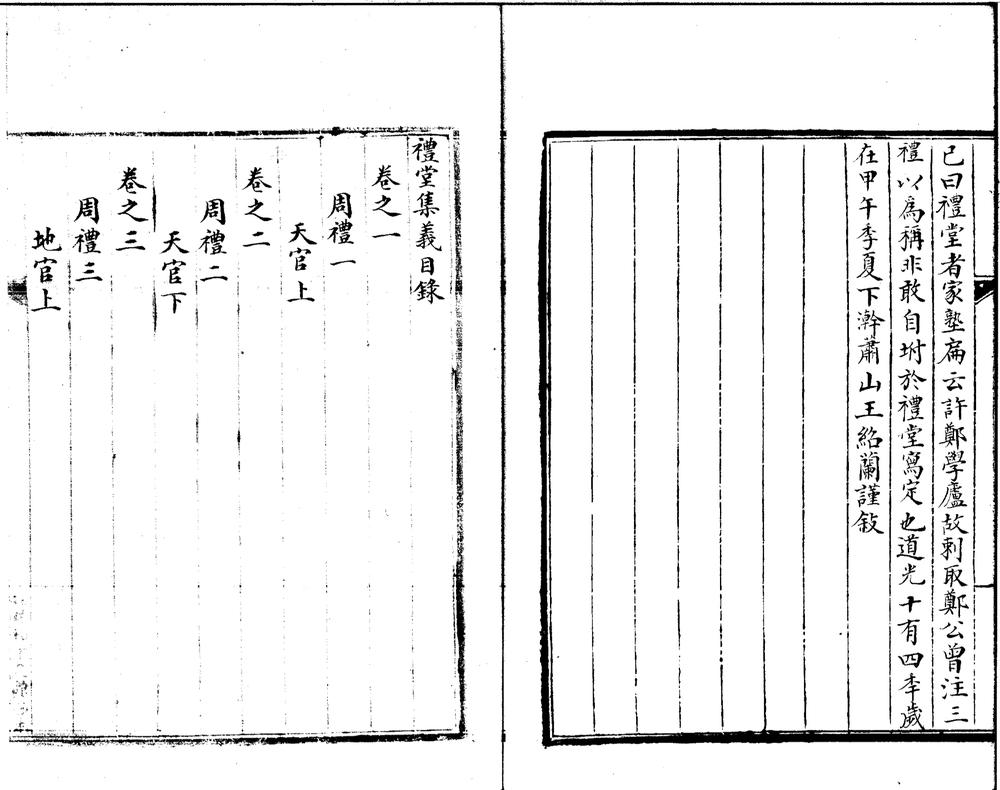 已曰禮堂者家塾扁云許鄭學廬故刺取鄭公曾注三
禮以為稱非敢自坿於禮堂寫定也道光十有四秊歲
在甲午季夏下澣蕭山王紹蘭謹敍
禮堂集義目錄
卷之一
周禮一
天官上
卷之二
周禮二
天官下
卷之三
周禮三
地官上